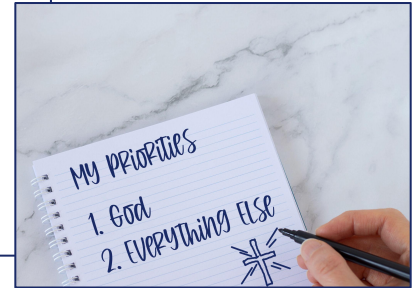 My PRioRiTies
1. God
2. EVERyThing ELSE